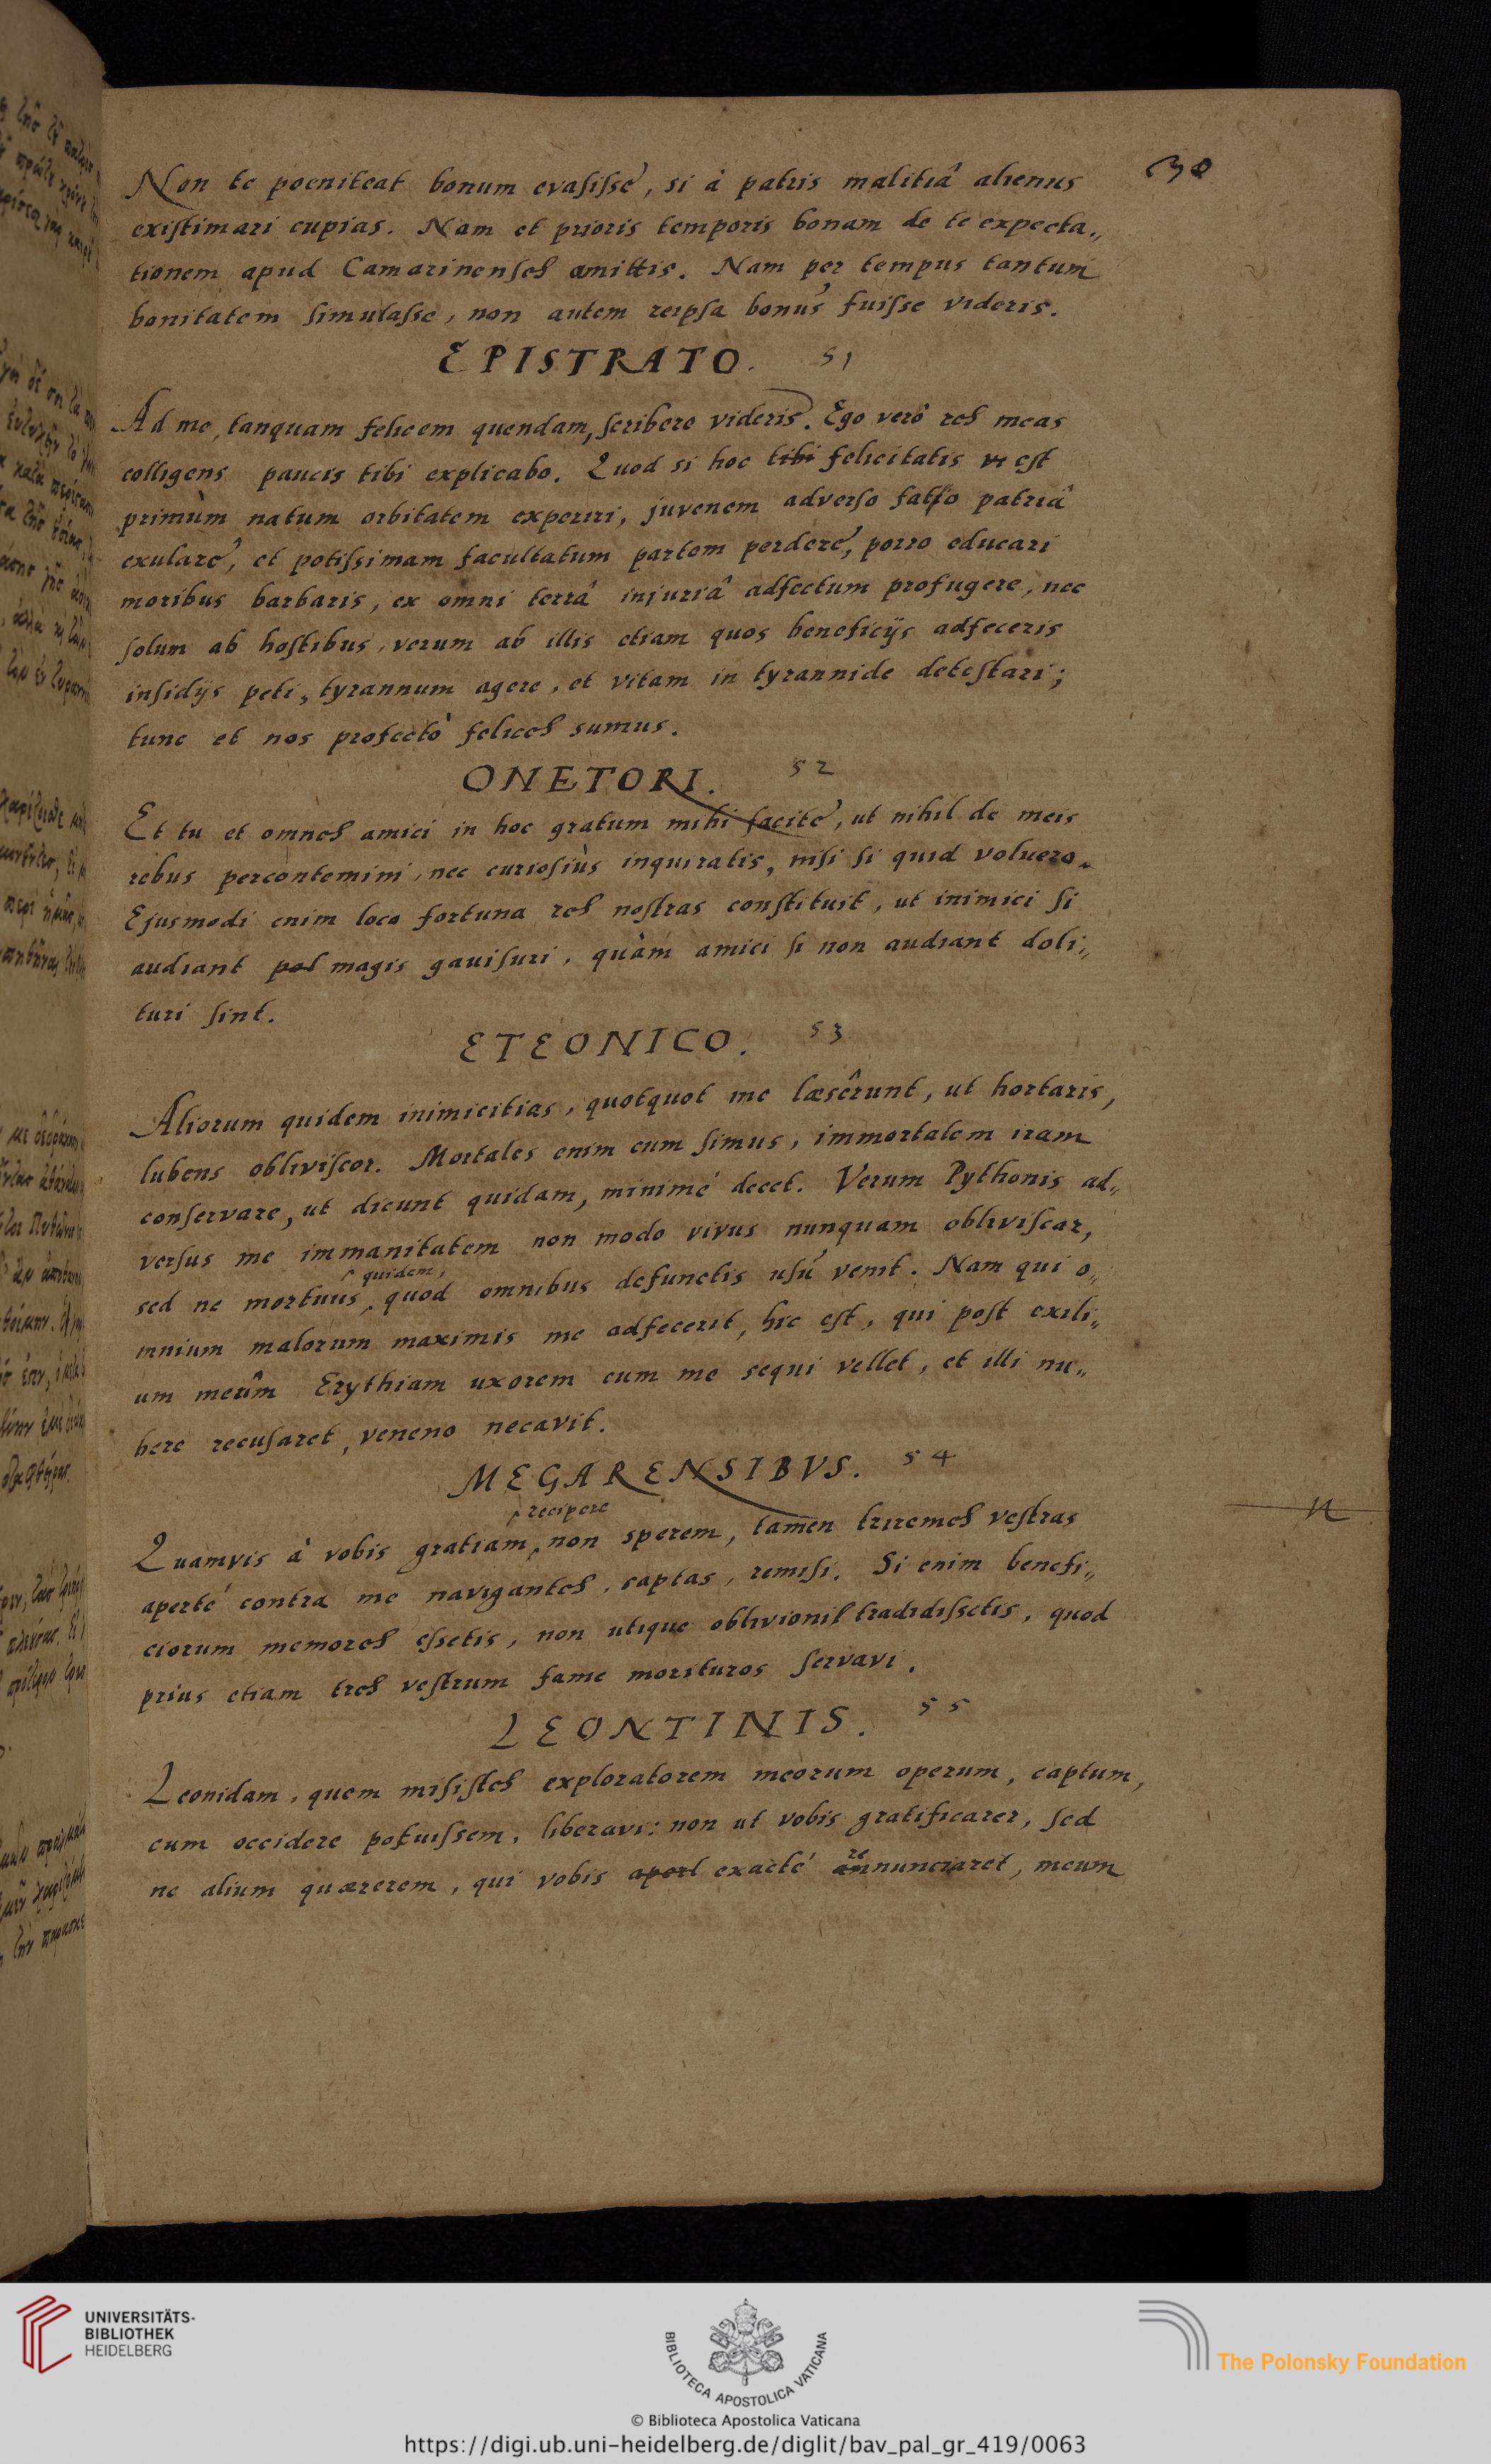 30
Non te poeniteat bonum evasisse, si à patris malitiâ alienus
existimari cupias. Nam et prioris temporis bonam de te expecta„
tionem apud Camarinenses amittis. Nam per tempus tantum
bonitatem simulasse, non autem reipsa bonus fuisse videris.
EPISTRATO. 51
Ad me, tanquam felicem quendam, scribere videris. Ego verò res meas
colligens paucis tibi explicabo. Quod si hoc tibi felicitatis est
primùm natum orbitatem experiri, juvenem adverso fato patriâ
exulare, et potissimam facultatum partem perdere, porro educari
moribus barbaris, ex omni terrâ injuriâ adfectum profugere, nec
solum ab hostibus, verum ab illis etiam quos beneficijs adfeceris
insidijs peti, tyrannum agere, et vitam in tyrannide detestari;
tunc et nos profectò felices sumus.
ONETORI. 52
Et tu et omnes amici in hoc gratum mihi facite, ut nihil de meis
rebus percontemini, nec curiosiùs inquiratis, nisi si quid voluero.
Ejusmodi enim loco fortuna res nostras constituit, ut inimici si
audiant pol magis gavisuri, quàm amici si non audiant doli„
turi sint.
ETEONICO. 53
Aliorum quidem inimicitias, quotquot me læsêrunt, ut hortaris,
lubens obliviscor. Mortales enim cum simus, immortalem iram
conservare, ut dicunt quidam, minimé decet. Verum Pythonis ad„
versus me immanitatem non modo vivus nunquam obliviscar,
quidem,
sed ne mortuus quod omnibus defunctis usú venit. Nam qui o„
mnium malorum maximis me adfecerit, hic est, qui post exili„
um meûm Erythiam uxorem cum me sequi vellet, et illi nu„
bere recusaret, veneno necavit.
MEGARENSIBVS. 54
recipere
Quamvis à vobis gratiam, non sperem, tamen triremes vestras
n
aperté contra me navigantes, captas, remisi. Si enim benefi„
ciorum memores essetis, non utique oblivionis tradidissetis, quod
prius etiam tres vestrum fame morituros servavi.
LEONTINIS. 55
Leonidam, quem misistes exploratorem meorum operum, captum,
cum occidere potuissem, liberavi: non ut vobis gratificarer, sed
re
ne alium quærerem, qui vobis apert exacté annunciaret, meum
UNIVERSITÄTS-
BIBLIOTHEK
HEIDELBERG
BIBLIOTECA APOSTOLICA VATICANA
The Polonsky Foundation
© Biblioteca Apostolica Vaticana
https://digi.ub.uni-heidelberg.de/diglit/bav_pal_gr_419/0063